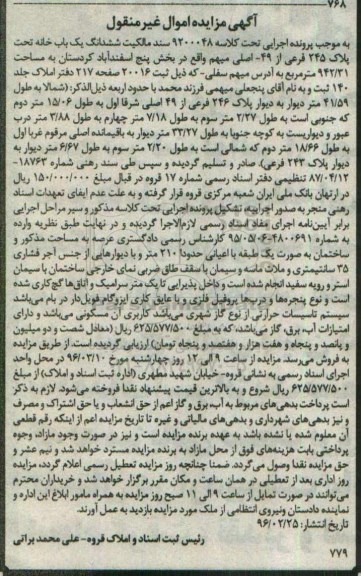 ۷۶۸
آگهی مزایده اموال غیر منقول
به موجب پرونده اجرایی تحت کلاسه ۹۲۰۰۰۴۸ سند مالکیت ششدانگ یک باب خانه تحت
پلاک ۲۴۵ فرعی از ۴۹- اصلی میهم واقع در بخش پنج اسفندآباد کردستان به مساحت
۹۴۲/۲۱ مترمربع به آدرس میهم سفلی- که ذیل ثبت ۲۰۰۱۶ صفحه ۲۱۷ دفتر املاک جلد
۱۴۰ ثبت و به نام آقای پنجعلی میهمی فرزند محمد با حدود اربعه ذیل‌الذکر: (شمالا به طول
۴۱/۵۹ متر دیوار به دیوار پلاک ۲۴۶ فرعی از ۴۹ اصلی شرقا اول به طول ۱۵/۰۶ متر دوم
که جنوبی است به طول ۲/۲۷ متر سوم به طول ۷/۱۸ متر چهارم به طول ۳/۸۸ متر درب
عبور و دیواریست به کوچه جنوبا به طول ۳۳/۲۷ متر دیوار به باقیمانده اصلی مرقوم غربا اول
به طول ۱۸/۶۶ متر دوم که شمالی است به طول ۲/۲۰ متر سوم به طول ۶/۶۷ متر دیوار به
دیوار پلاک ۲۴۳ فرعی). صادر و تسلیم گردیده و سپس طی سند رهنی شماره ۱۸۷۶۳-
۸۷/۰۴/۱۲ تنظیمی دفتر اسناد رسمی شماره ۱۷ قروه در قبال مبلغ ۱۵۰/۰۰۰/۰۰۰ ریال
در ارتهان بانک ملی ایران شعبه مرکزی قروه قرار گرفته و به علت عدم ایفای تعهدات اسناد
رهنی منجر به صدور اجرائیه، تشکیل پرونده اجرایی تحت کلاسه مذکور و سیر مراحل اجرایی
برابر آیین‌نامه اجرای مفاد اسناد رسمی لازم‌الاجرا گردیده و در نهایت طبق نظریه وارده
به شماره ۴۸۰۰۶۹۱-۹۵/۰۵/۰۶ کارشناس رسمی دادگستری عرصه به مساحت مذکور و
ساختمان به صورت یک طبقه با اعیانی حدودا ۲۱۰ متر و با دیوارهایی از جنس آجر فشاری
۳۵ سانتیمتری و ملات ماسه و سیمان با سقف طاق ضربی نمای خارجی ساختمان با سیمان
استر و رویه سفید انجام شده است و داخل پذیرایی تا یک متر سرامیک و اتاق‌ها گچ‌کاری شده
است و نوع پنجره‌ها و درب‌ها پروفیل فلزی و با عایق کاری ایزوگام فویل‌دار در بام می‌باشد
سیستم تاسیسات حرارتی از نوع گاز شهری می‌باشد کاربری آن مسکونی می‌باشد و دارای
امتیازات آب، برق، گاز می‌باشد، که به مبلغ ۶۲۵/۵۷۷/۵۰۰ ریال (معادل شصت و دو میلیون
و پانصد و پنجاه و هفت هزار و هفتصد و پنجاه تومان) ارزیابی گردیده است. از طریق مزایده
به فروش می‌رسد. مزایده از ساعت ۹ الی ۱۲ روز چهارشنبه مورخ ۹۶/۰۳/۱۰ در محل واحد
اجرای اسناد رسمی به نشانی قروه- خیابان شهید مطهری (اداره ثبت اسناد و املاک) از مبلغ
۶۲۵/۵۷۷/۵۰۰ ریال شروع و به بالاترین قیمت پیشنهاد نقدا فروخته می‌شود. لازم به ذکر
است پرداخت بدهی‌های مربوط به آب، برق و گاز اعم از حق انشعاب و یا حق اشتراک و مصرف
و نیز بدهی‌های شهرداری و بدهی‌های مالیاتی و غیره تا تاریخ مزایده اعم از اینکه رقم قطعی
آن معلوم شده یا نشده باشد به عهده برنده مزایده است و نیز در صورت وجود مازاد، وجوه
پرداختی بابت هزینه‌های فوق از محل مازاد به برنده مزایده مسترد خواهد شد و نیم عشر و
حق مزایده نقدا وصول می‌گردد. ضمنا چنانچه روز مزایده تعطیل رسمی اعلام گردد، مزایده
روز اداری بعد از تعطیلی در همان ساعت و مکان مقرر برگزار خواهد شد و خریداران محترم
می‌توانند در صورت تمایل از ساعت ۹ الی ۱۱ صبح روز مزایده به همراه مامور ابلاغ این اداره و
نماینده دادستان و نیروی انتظامی از ملک مورد مزایده بازدید به عمل آورند.
تاریخ انتشار: ۹۶/۰۲/۲۵
رئیس ثبت اسناد و املاک قروه- علی محمد براتی
۷۷۹